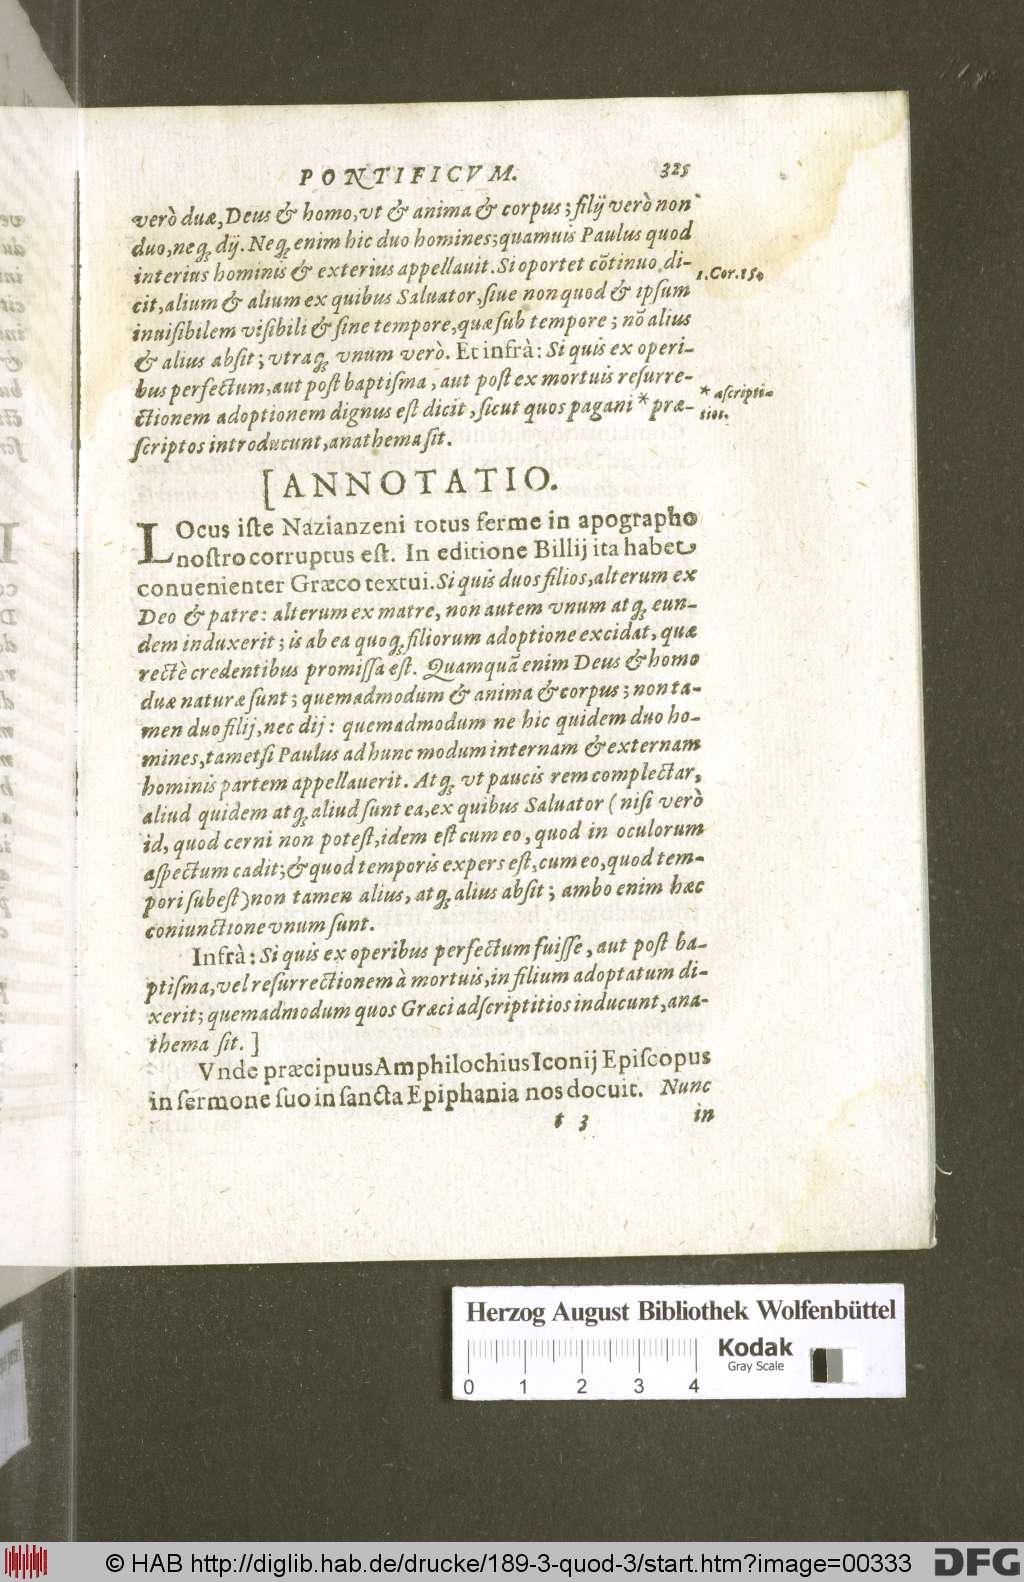 PONTIFICVM. 325
verò duæ, Deus & homo, vt & anima & corpus; filij verò non
duo, neq; dij. Neq; enim hic duo homines; quamuis Paulus quod
interius hominis & exterius appellauit. Si oportet cõtinuo di-
1. Cor. 15.
cit, alium & alium ex quibus Saluator, siue non quod & ipsum
inuisibilem visibili & sine tempore, quæ sub tempore; nõ alius
& alius absit; vtraq; vnum verò. Et infrà: Si quis ex operi-
bus perfectum, aut post baptisma, aut post ex mortuis resurre-
* ascripti-
tios.
ctionem adoptionem dignus est dicit, sicut quos pagani * præ-
scriptos introducunt, anathema sit.
[ANNOTATIO.
LOcus iste Nazianzeni totus ferme in apographo
nostro corruptus est. In editione Billij ita habet
conuenienter Græco textui. Si quis duos filios, alterum ex
Deo & patre: alterum ex matre, non autem vnum atq; eun-
dem induxerit; is ab ea quoq; filiorum adoptione excidat, quæ
rectè credentibus promissa est. Quamquã enim Deus & homo
duæ naturæ sunt; quemadmodum & anima & corpus; non ta-
men duo filij, nec dij: quemadmodum ne hic quidem duo ho-
mines, tametsi Paulus ad hunc modum internam & externam
hominis partem appellauerit. Atq; vt paucis rem complectar,
aliud quidem atq; aliud sunt ea, ex quibus Saluator (nisi verò
id, quod cerni non potest, idem est cum eo, quod in oculorum
aspectum cadit; & quod temporis expers est, cum eo, quod tem-
pori subest) non tamen alius, atq; alius absit; ambo enim hæc
coniunctione vnum sunt.
Infrà: Si quis ex operibus perfectum fuisse, aut post ba-
ptisma, vel resurrectionem à mortuis, in filium adoptatum di-
xerit; quemadmodum quos Græci adscriptitios inducunt, ana-
thema sit.]
Vnde præcipuus Amphilochius Iconij Episcopus
in sermone suo in sancta Epiphania nos docuit. Nunc
t 3 in
Herzog August Bibliothek Wolfenbüttel
Kodak
Gray Scale
0 1 2 3 4
© HAB http://diglib.hab.de/drucke/189-3-quod-3/start.htm?image=00333
DFG